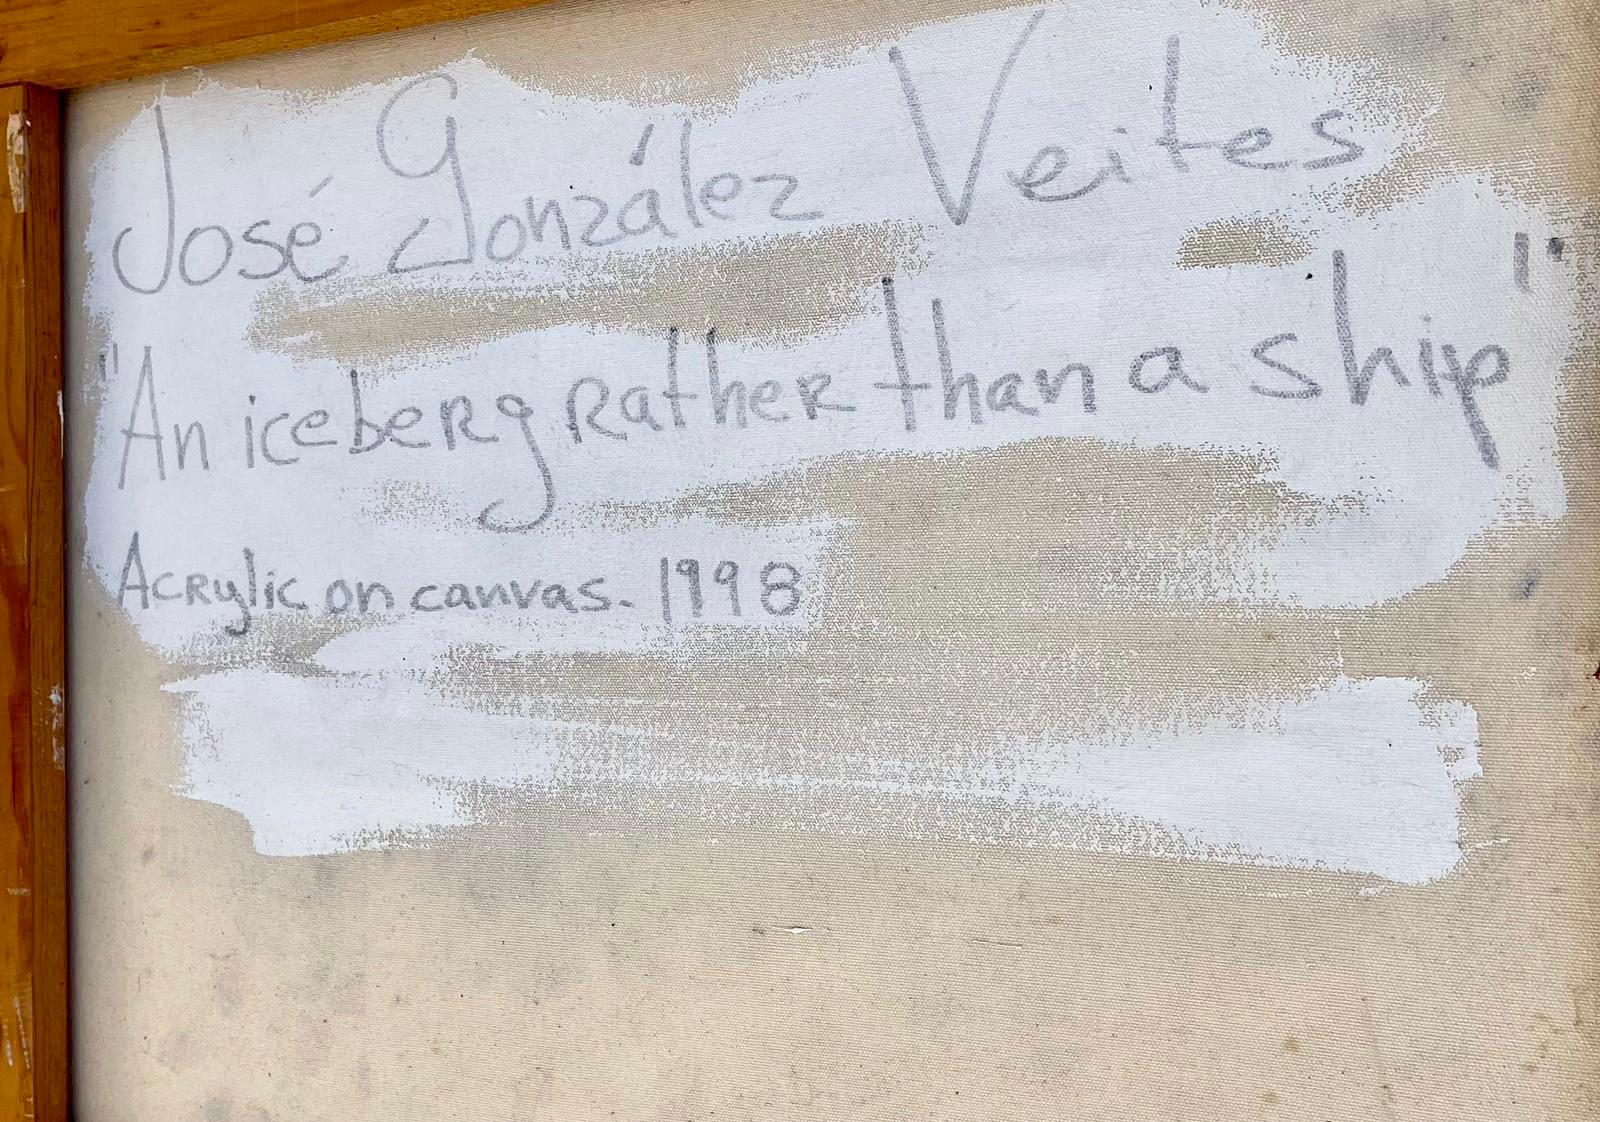 José González Veites
"An iceberg rather than a ship"
Acrylic on canvas. 1998